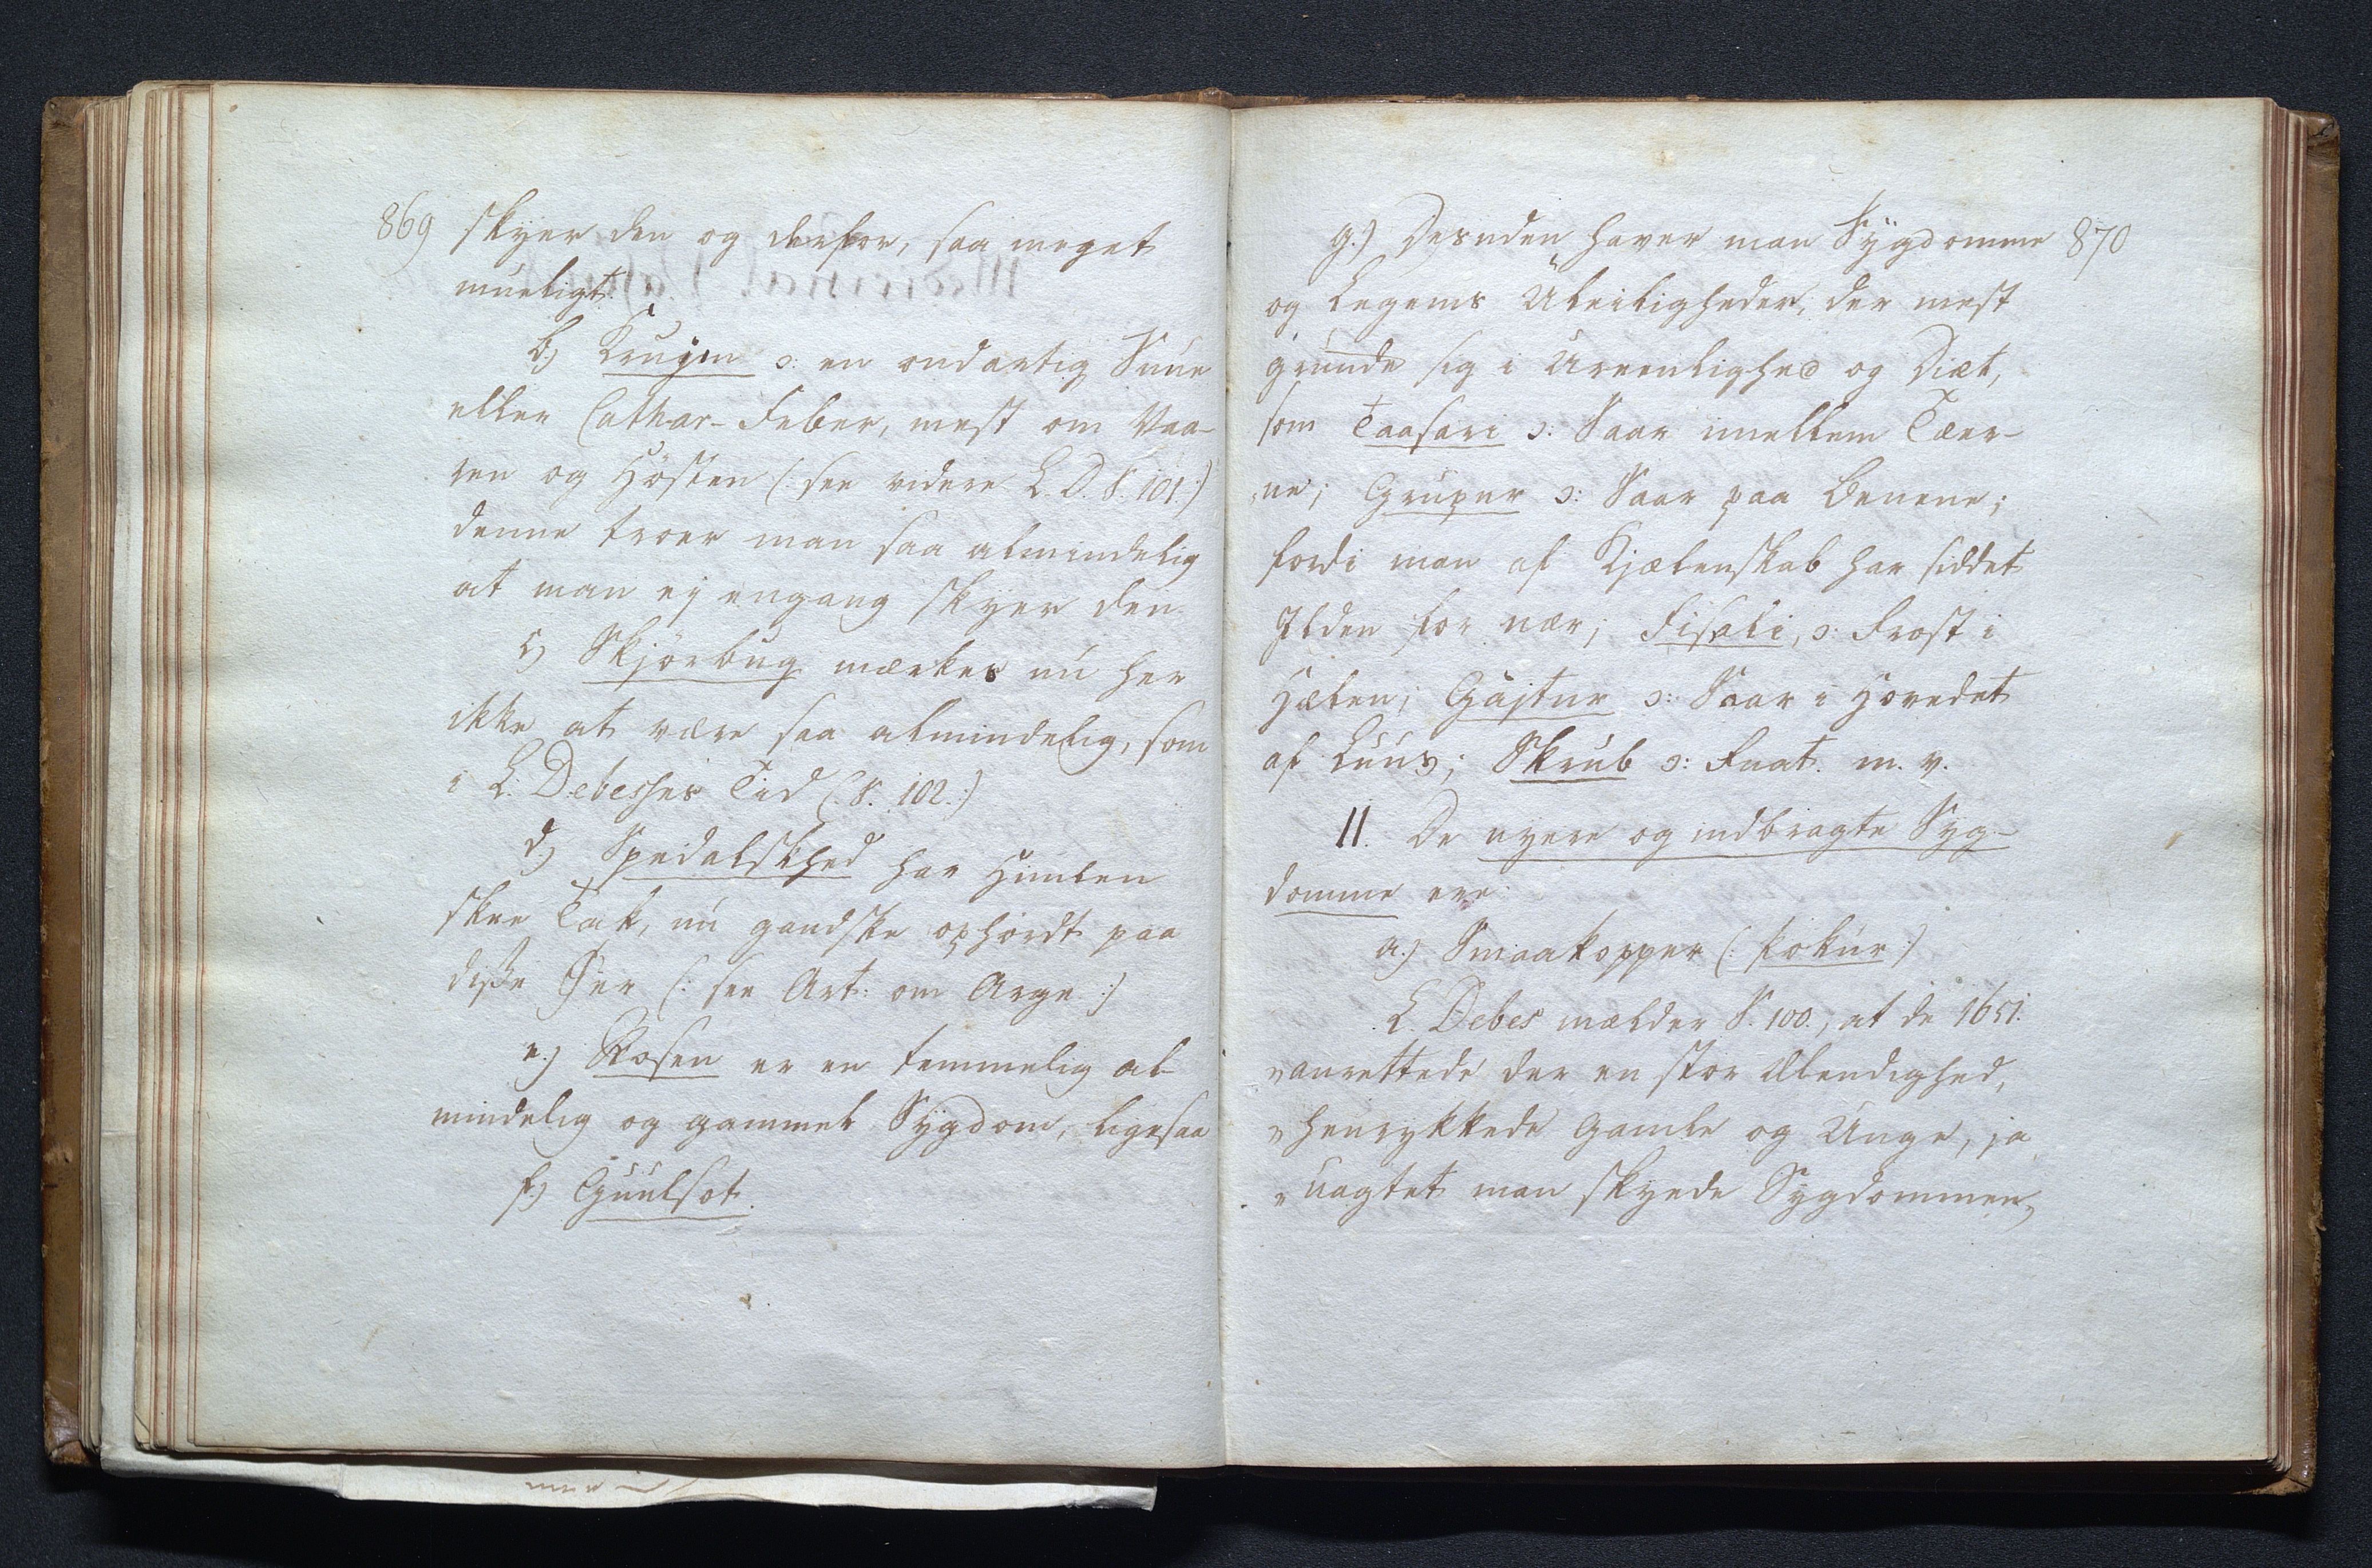 869
skyer den og derfor, saa meget
mueligt.
b) Kruÿm ɔ: en ondartig Snue
eller Cathar-Feber, mest om Vaa-
ren og Hösten (: see videre L. D. S. 101 :)
denne troer man saa almindelig
at man ej engang skyer den
c) Skjörbug mærkes nu her
ikke at være saa almindelig, som
i L. Debeshes Tid (: S. 102. :)
d) Spedalskhed har Himlen
skee Tak, nu gandske ophördt paa
disse Öer (: see Art: om Arge :)
e.) Rosen er en temmelig al-
mindelig og gammel Sÿgdom, ligesaa
f.) Guulsot.
870
g.) Desuden haver man Sÿgdomme
og Legems Uleiligheder, der mest
grunde sig i Ureenlighed og Diæt,
som Taasari ɔ: Saar imellem Tæer-
ne; Grupur ɔ: Saar paa Benene;
fordi man af Kjælenskab har siddet
Ilden for nær; Fisali, ɔ: Frost i
Hælen; Gájtur ɔ: Saar i Hovedet
af Luus; Skrub ɔ: Fnat. m. v.
II. De nyere og indbragte Syg-
domme ere:
a.) Smaakopper (: Kokur :)
L. Debes mælder S. 100., at de 1651.
"anrettede der en stor Elendighed,
"henrykkede Gamle og Unge, ja
"uagtet man skyede Sygdommen,